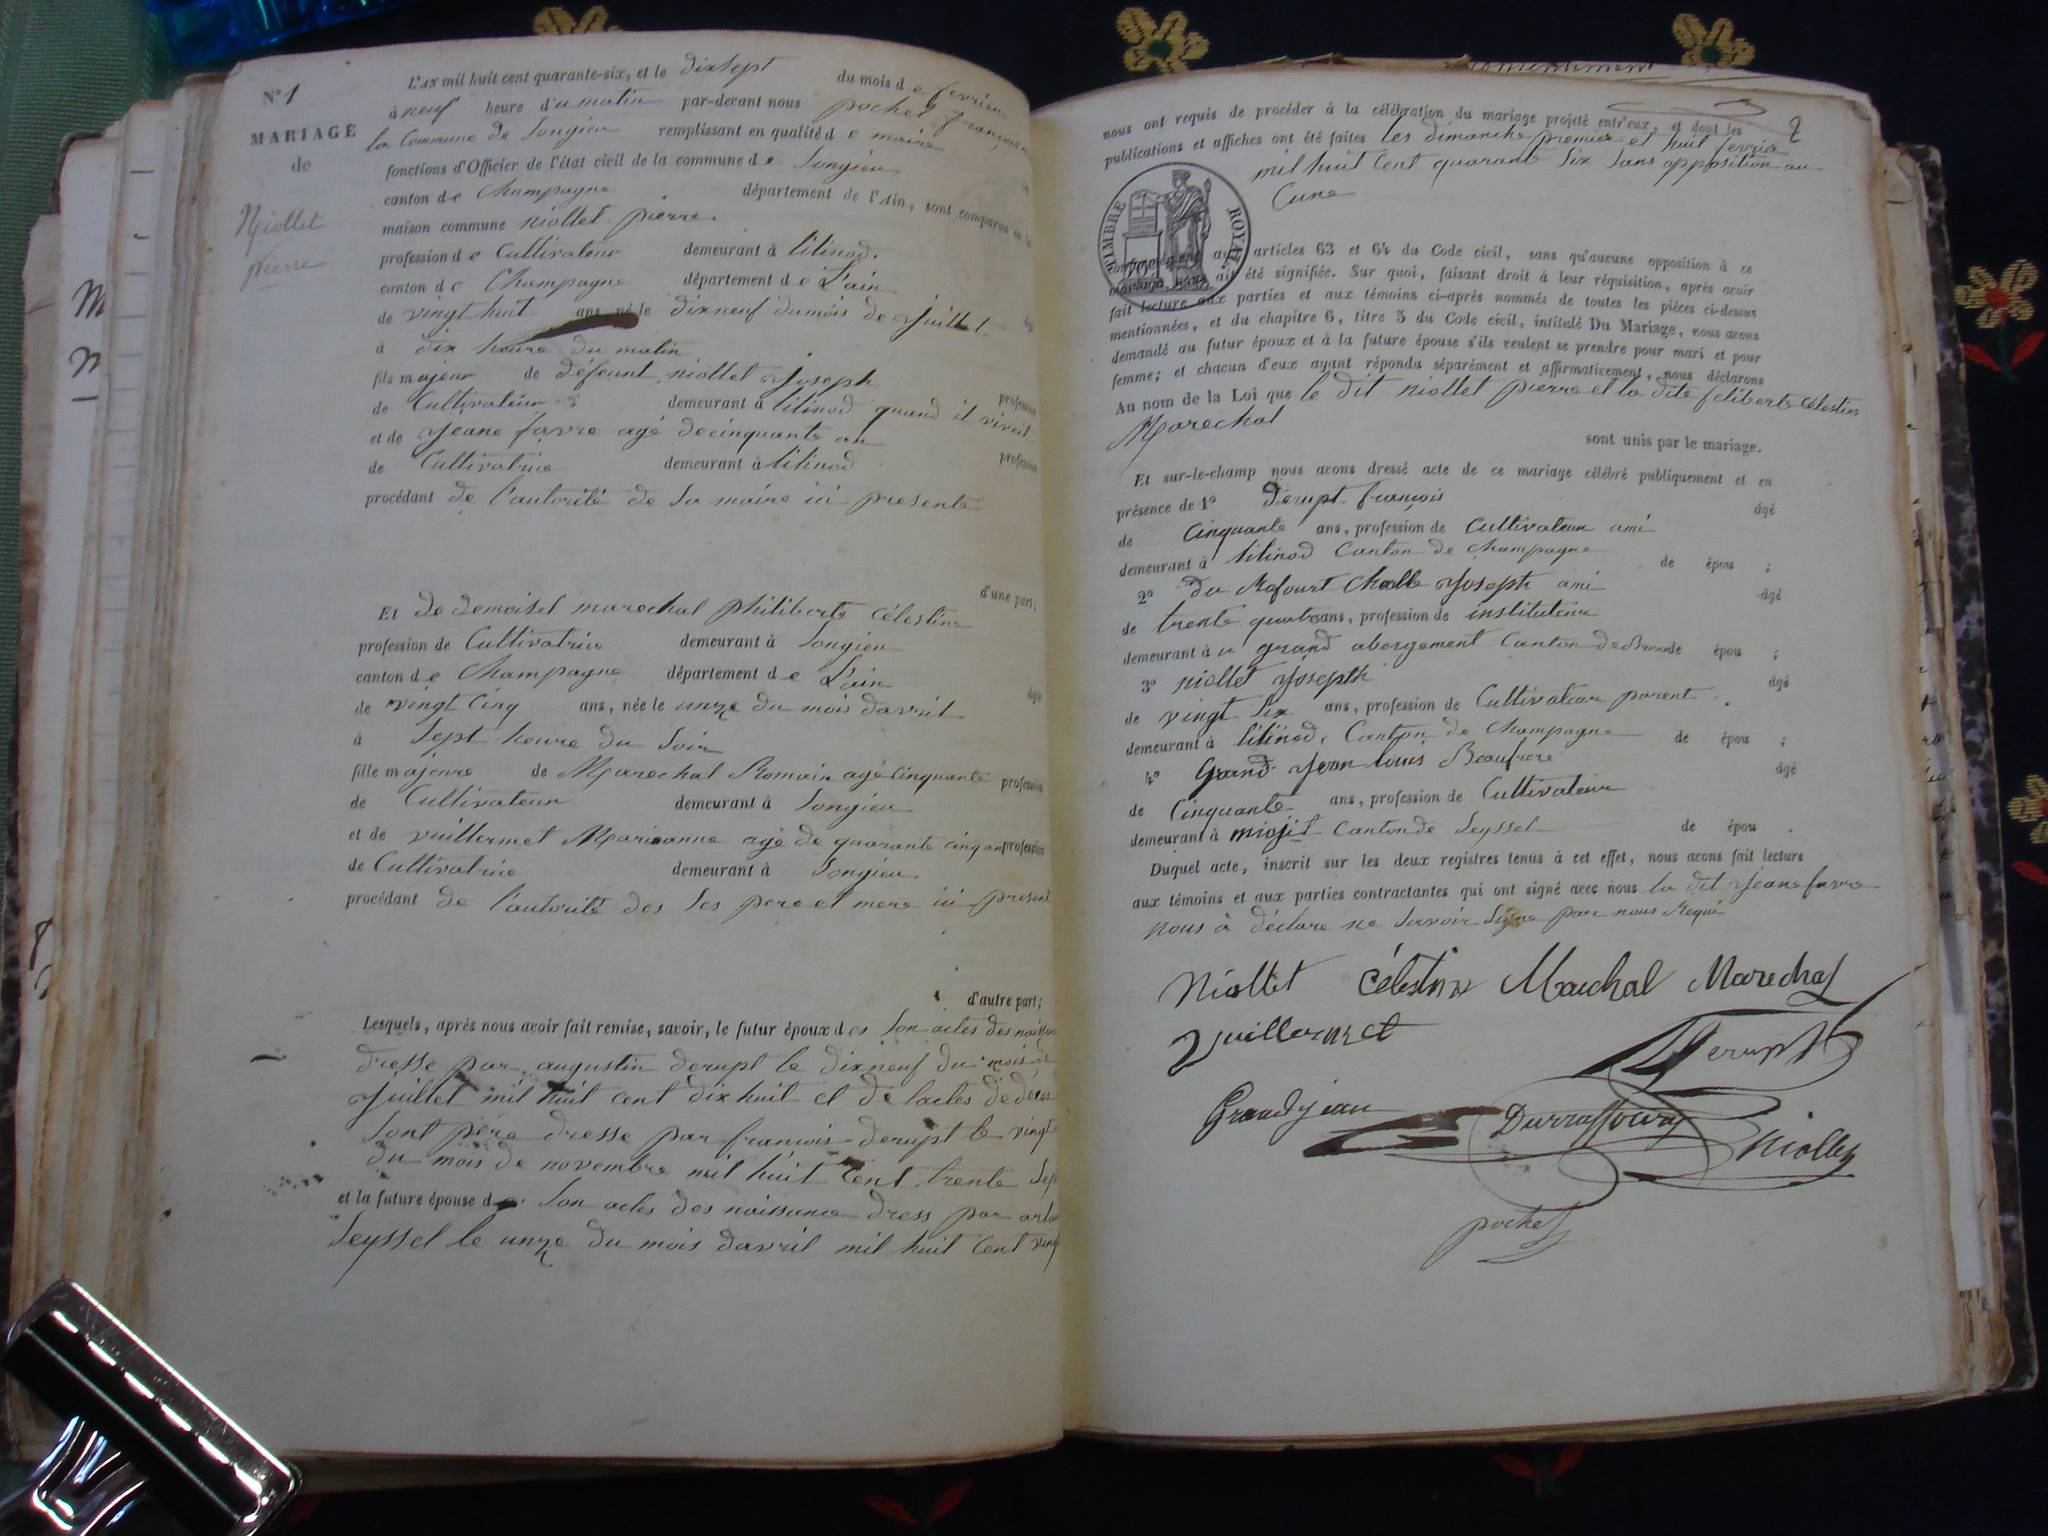 N° 1
MARIAGE
de
Niollet
pierre
L'AN mil huit cent quarante-six, et le dix Sept du mois de fevrier
à neuf heure du matin par-devant nous pochet françois
la Commune de Songieu remplissant en qualité de maire
fonctions d'Officier de l'état civil de la commune de Songieu
canton de Champagne département de l'Ain, sont comparus en la
maison commune niollet pierre.
profession de Cultivateur demeurant à lilinod.
canton de Champagne département de L'ain
de vingt huit ans, né le dix neuf du mois de Juillet
à dix heure du matin
fils majeur de défeunt niollet Joseph profession
de Cultivateur demeurant à lilinod quand il viveit
et de Jeane favre agé de cinquante an profession
de Cultivatrice demeurant à lilinod
procédant de l'autorité de Sa maire ici presente
d'une part;
Et de demoisel marechal philiberte célestine
profession de Cultivatrice demeurant à Songieu
canton de Champagne département de L'ain
âgée
de vingt Cinq ans, née le unze du mois davril
à Sept heure du Soir
fille majeure de Marechal Romain agé Cinquante profession
de Cultivateur demeurant à Songieu
et de vuillermet Marianne agé de quarante cinq an profession
de Cultivatrice demeurant à Songieu
procédant de l'autorité des Ses pere et mere ici present
d'autre part;
Lesquels, après nous avoir fait remise, savoir, le futur époux des Son actes des naissance
dresse par augustin derupt le dix neuf du mois de
Juillet mil huit cent dix huit et de lactes de déces
Sont père dresse par francois derupt le vingt
du mois de novembre mil huit Cent trente Sep
et la future épouse de Son actes des naissance dress par
Seyssel le unze du mois davril mil huit Cent ving
2
nous ont requis de procéder à la célébration du mariage projeté entr'eux, et dont les
publications et affiches ont été faites les dimanche premier et huit fevrier
mil huit Cent quarante Six Sans opposition au
Cune
TIMBRE ROYAL
conformément aux articles 63 et 64 du Code civil, sans qu'aucune opposition à ce
mariage nous ait été signifiée. Sur quoi, faisant droit à leur réquisition, après avoir
fait lecture aux parties et aux témoins ci-après nommés de toutes les pièces ci-dessus
mentionnées, et du chapitre 6, titre 5 du Code civil, intitulé Du Mariage, nous avons
demandé au futur époux et à la future épouse s'ils veulent se prendre pour mari et pour
femme; et chacun d'eux ayant répondu séparément et affirmativement, nous déclarons
Au nom de la Loi que le dit niollet pierre et la dite feliberte célestine
Marechal
sont unis par le mariage.
Et sur-le-champ nous avons dressé acte de ce mariage célébré publiquement et en
présence de 1° Derupt françois âgé
de Cinquante ans, profession de Cultivateur ami
demeurant à lilinod Canton de Champagne de épou ;
2° du Rafourt Challe Joseph ami âgé
de trente quatre ans, profession de instituteur
demeurant à u grand abergement Canton de Brenode épou ;
3° niollet Joseph âgé
de vingt Six ans, profession de Cultivateur parent.
demeurant à lilinod, Canton de Champagne de épou ;
4° Grand Jean louis Beaufrere âgé
de Cinquante ans, profession de Cultivateur
demeurant à Canton de Seyssel de épou .
Duquel acte, inscrit sur les deux registres tenus à cet effet, nous avons fait lecture
aux témoins et aux parties contractantes qui ont signé avec nous la dit Jeane favre
nous à déclare ne Savoir Signe par nous Requi
Niollet Célestine Marechal Marechal
Vuillermet Derupt
Grandjean Durraffourg Niollet
pochet